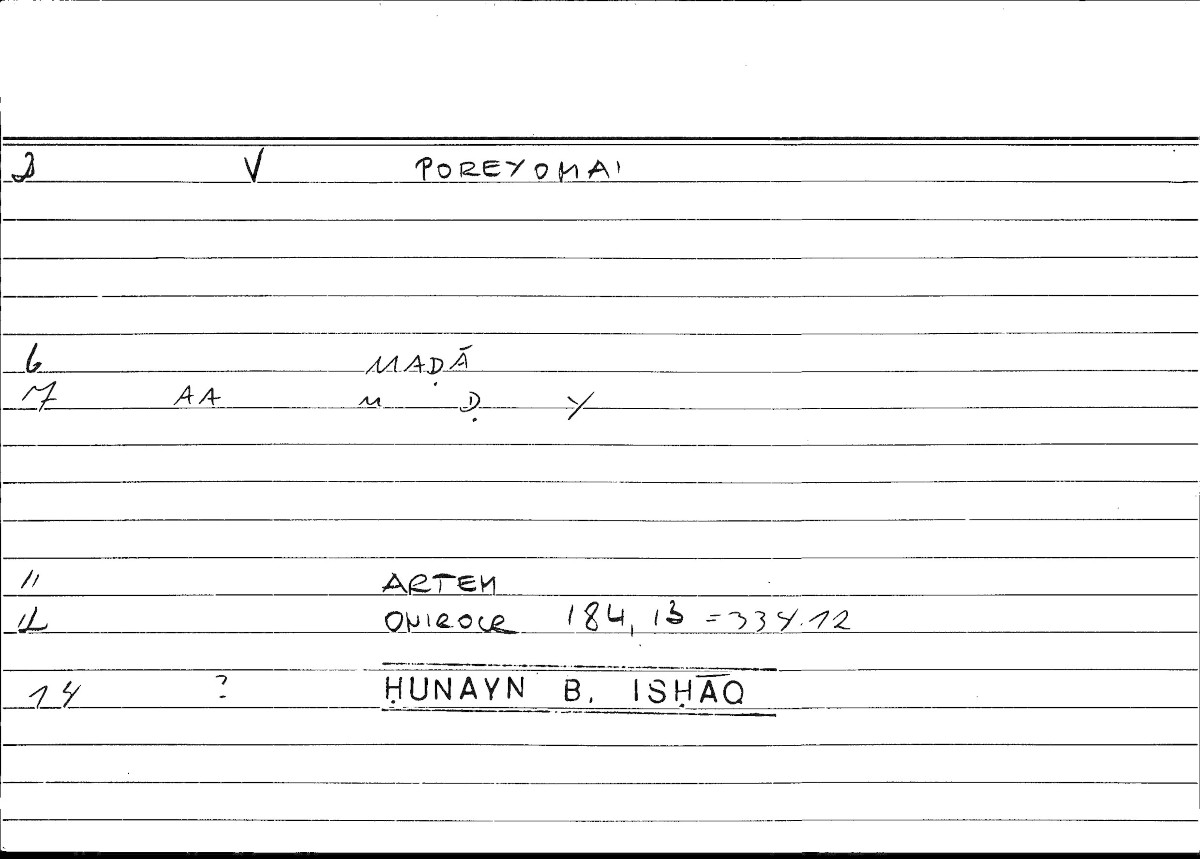 2 V POREYOMAI
6 MAḌĀ
7 AA M Ḍ Y
11 ARTEM
12 ONIROCR 184,13 = 334.12
14 ? ḤUNAYN B. ISḤĀQ